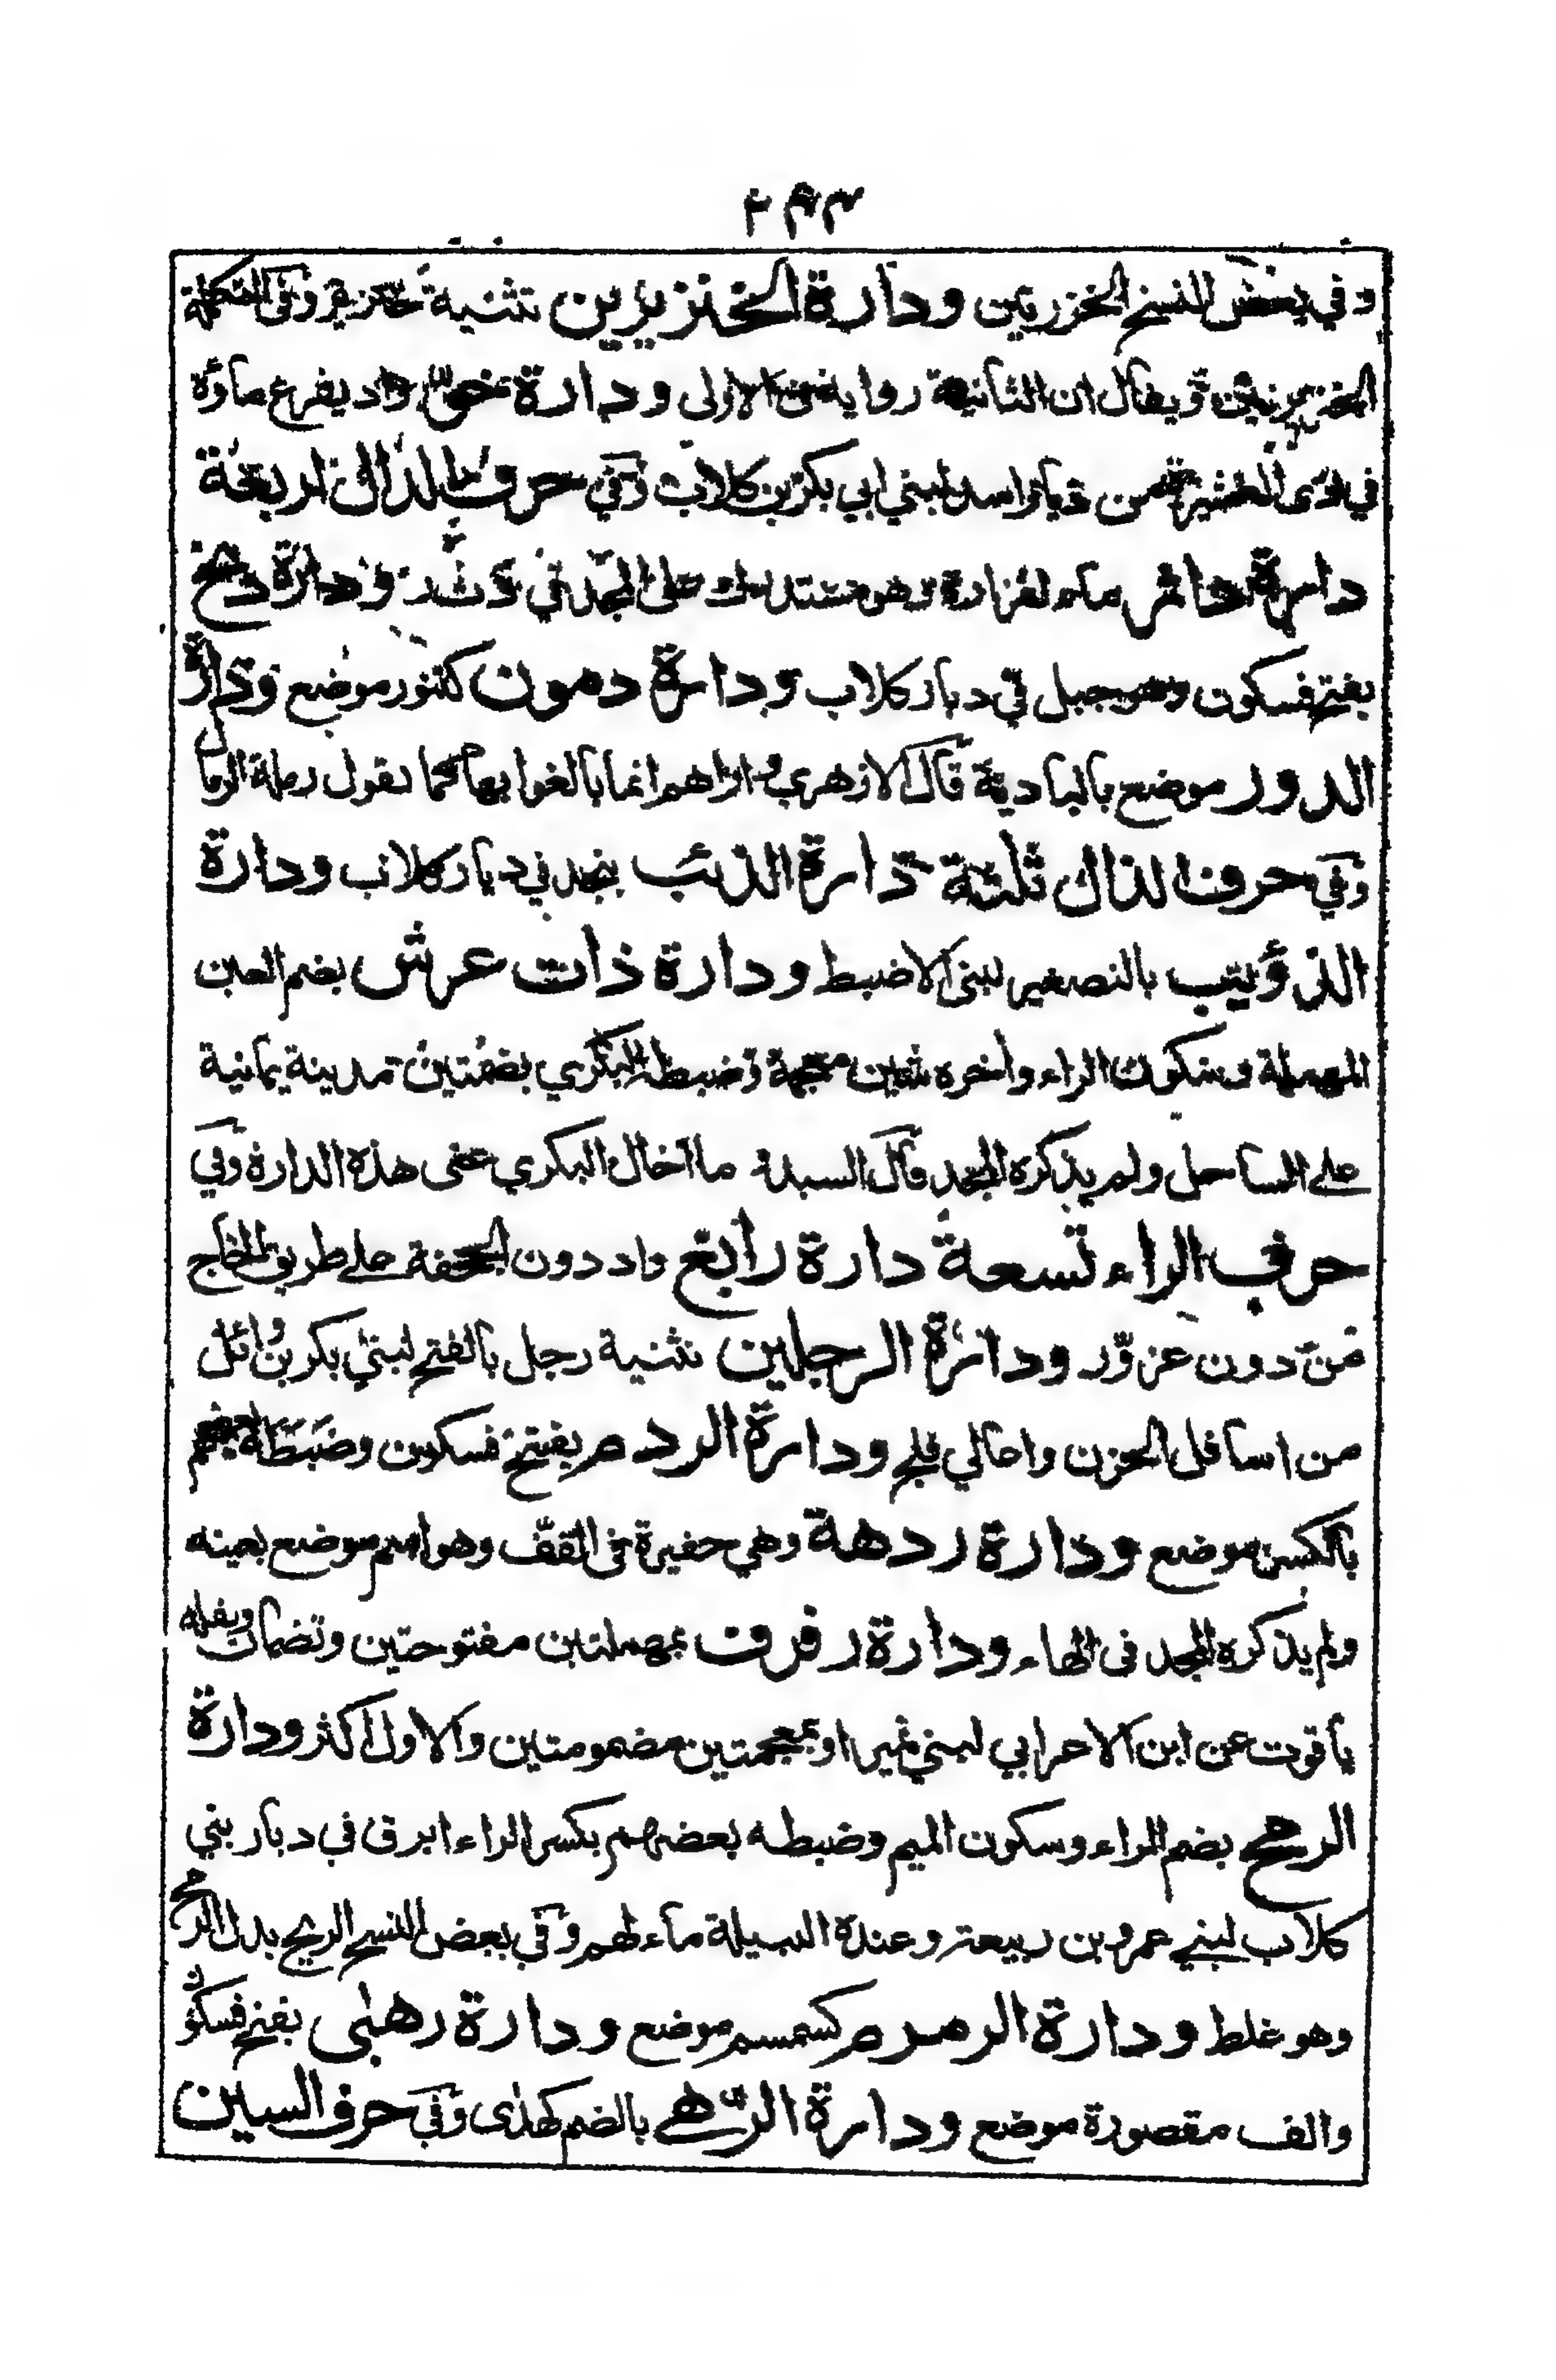 وفي بعض النسخ الخزرتين ودارة الخنزيرين تثنية خنزير وفى التكملة
الخنزيرتين ويقال ان الثانية رواية فى الاولى ودارة خو واد يفرغ ماؤه
في ذى العشيرة من ديار اسد لبني ابي بكر بن كلاب وفي حرف الدال اربعة
دارة داثر ماء لفزارة وهو مستدرك على المجد في د ث ر ودارة دمخ
بفتح فسكون وهو جبل في ديار كلاب ودارة دمون كتنور موضع ودارة
الدور موضع بالبادية قال الازهري واراهم انما بالغوا بها كما تقول رملة الرمال
وفي حرف الذال ثلثة دارة الذئب بنجد في ديار كلاب ودارة
الذؤيب بالتصغير لبنى الاضبط ودارة ذات عرش بضم العين
المهملة وسكون الراء وأخره شين معجمة وضبطه البكري بضمتين مدينة يمانية
على الساحل ولم يذكره المجد قال السيد ما اخال البكري عنى هذه الدارة وفي
حرف الراء تسعة دارة رابغ واد دون الجحفة على طريق الحاج
من دون عزور ودارة الرجلين تثنية رجل بالفتح لبني بكر بن وائل
من اسافل الحزن واعالي فلج ودارة الردم بفتح فسكون وضبطه بعضهم
بالكسر موضع ودارة ردهة وهي حفيرة فى القف وهو اسم موضع بعينه
ولم يذكره المجد فى الهاء ودارة رفرف بمهملتين مفتوحتين وتضمان ونقله
ياقوت عن ابن الاعرابي لبني نمير او بمعجمتين مضمومتين والاول اكثر ودارة
الرمح بضم الراء وسكون الميم وضبطه بعضهم بكسر الراء ابرق في ديار بني
كلاب لبني عمرو بن ربيعة وعنده البتيلة ماء لهم وفي بعض النسخ الريح بدل الرمح
وهو غلط ودارة الرمرم كسمسم موضع ودارة رهبى بفتح فسكون
والف مقصورة موضع ودارة الرهى بالضم كهدى وفي حرف السين